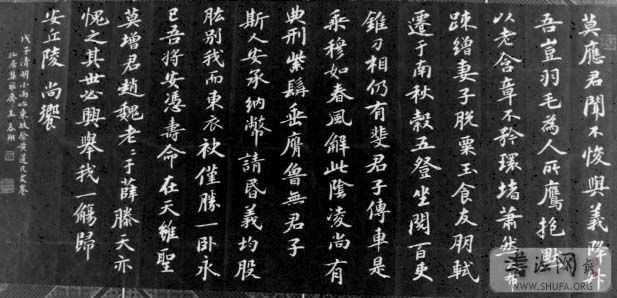 莫應君聞不悛與義降升
吾豈羽毛為人所鷹抱默
以老含章不矜環堵蕭然
疎繒妻子脫粟玉食友朋軾
遷于南秋穀五登坐閱百吏
錐刀相仍有斐君子傳車是
乘穆如春風解此陰凌尚有
典刑紫髯垂膺魯無君子
斯人安承納幣請昏義均股
肱別我而東衣袂僅勝一卧永
已吾將安憑壽命在天維聖
莫增君趙魏老老于薛滕天亦
愧之其世必興舉我一觴歸
安丘陵 尚饗
戊子清明小雨
書法网
WWW.SHUFA.ORG